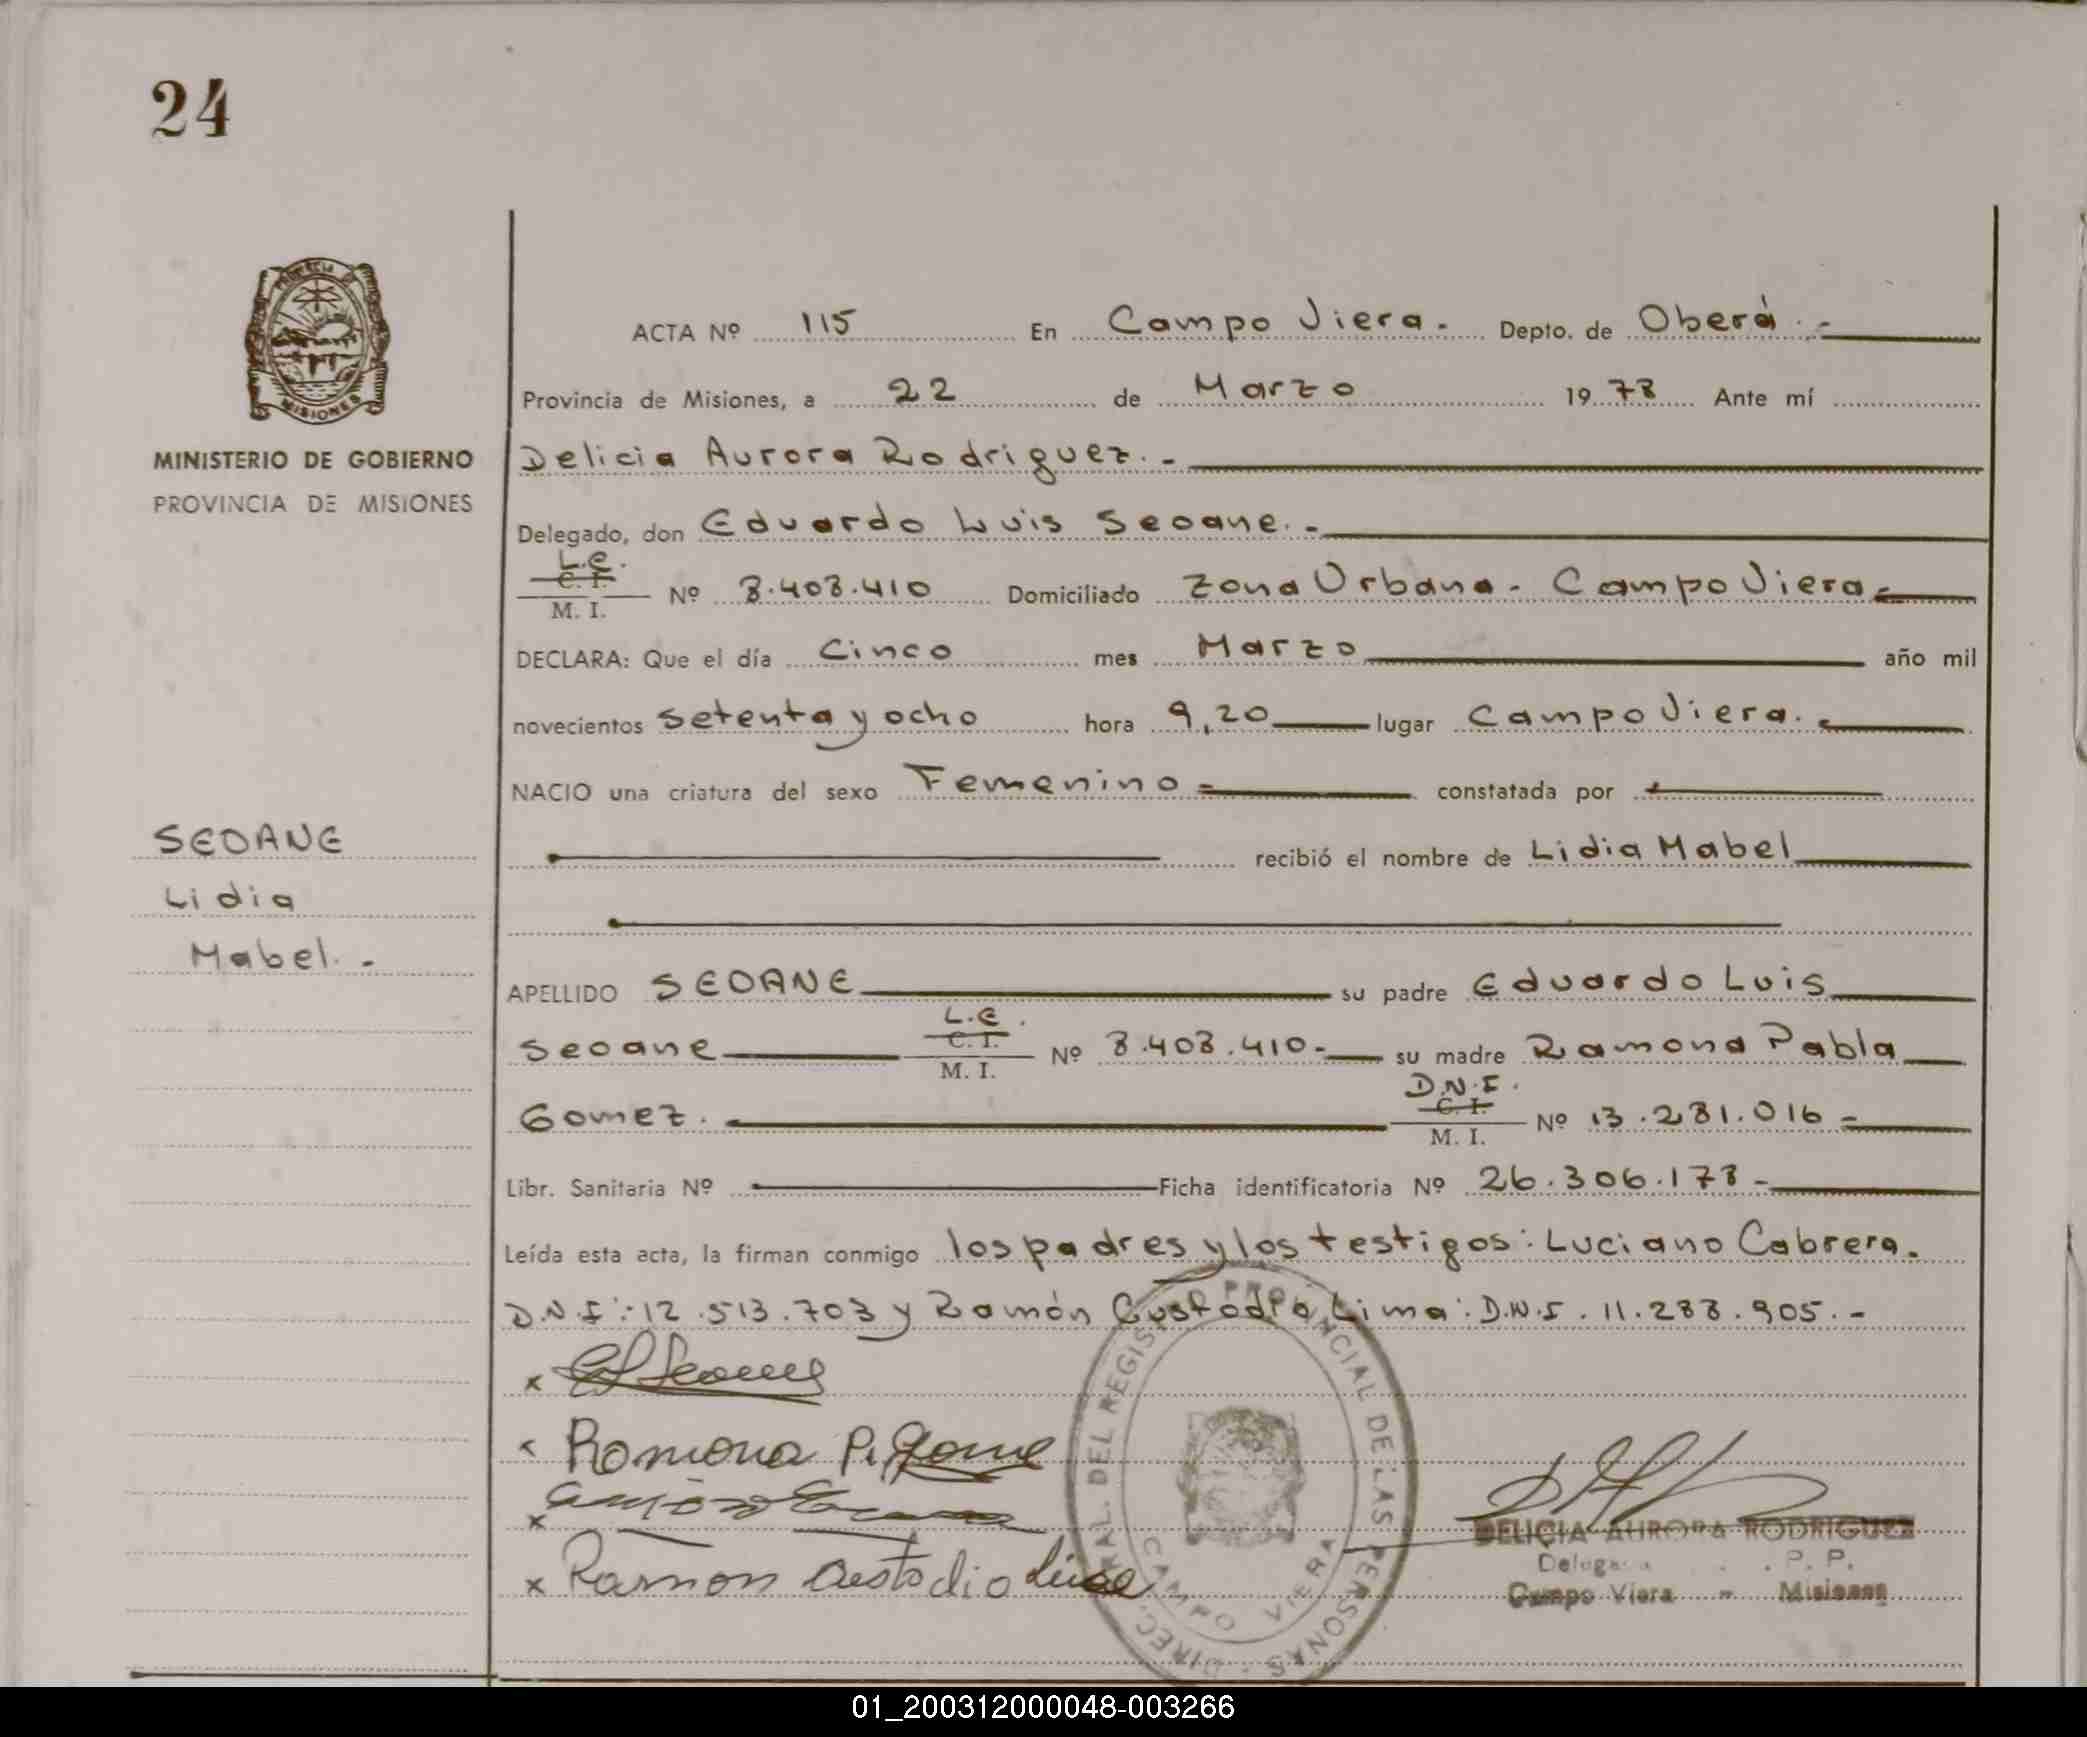 24
PROVINCIA DE
MISIONES
MINISTERIO DE GOBIERNO
PROVINCIA DE MISIONES
SEOANE
Lidia
Mabel.-
ACTA Nº 115 En Campo Viera.- Depto. de Oberá.-
Provincia de Misiones, a 22 de Marzo 1978 Ante mí
Delicia Aurora Rodriguez.-
Delegado, don Eduardo Luis Seoane.-
L.E.
C. I.
M. I. Nº 8.408.410 Domiciliado Zona Urbana - Campo Viera-
DECLARA: Que el día Cinco mes Marzo año mil
novecientos setenta y ocho hora 9,20 lugar Campo Viera.-
NACIO una criatura del sexo Femenino - constatada por
recibió el nombre de Lidia Mabel
APELLIDO SEOANE su padre Eduardo Luis
L.E.
C. I.
Seoane M. I. Nº 8.408.410- su madre Ramona Pabla
D.N.I.
C. I.
Gomez. M. I. Nº 13.281.016-
Libr. Sanitaria Nº Ficha identificatoria Nº 26.306.178-
Leída esta acta, la firman conmigo los padres y los testigos: Luciano Cabrera.
D.N.I: 12.513.703 y Ramón Custodio Lima: D.N.I. 11.288.905.-
x Seoane
x Ramona P. Gome
x
x Ramon Custodio
DIREC. GRAL. DEL REGISTRO PROVINCIAL DE LAS PERSONAS -
CAMPO VIERA
DELICIA AURORA RODRIGUEZ
P. P.
Campo Viera - Misiones
01_200312000048-003266